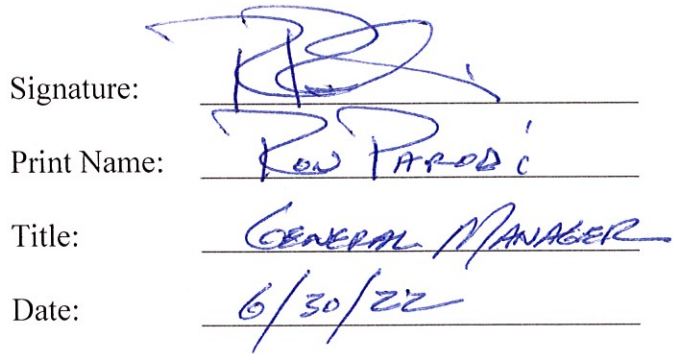 Signature:
Print Name: Ron Parodi
Title: General Manager
Date: 6/30/22